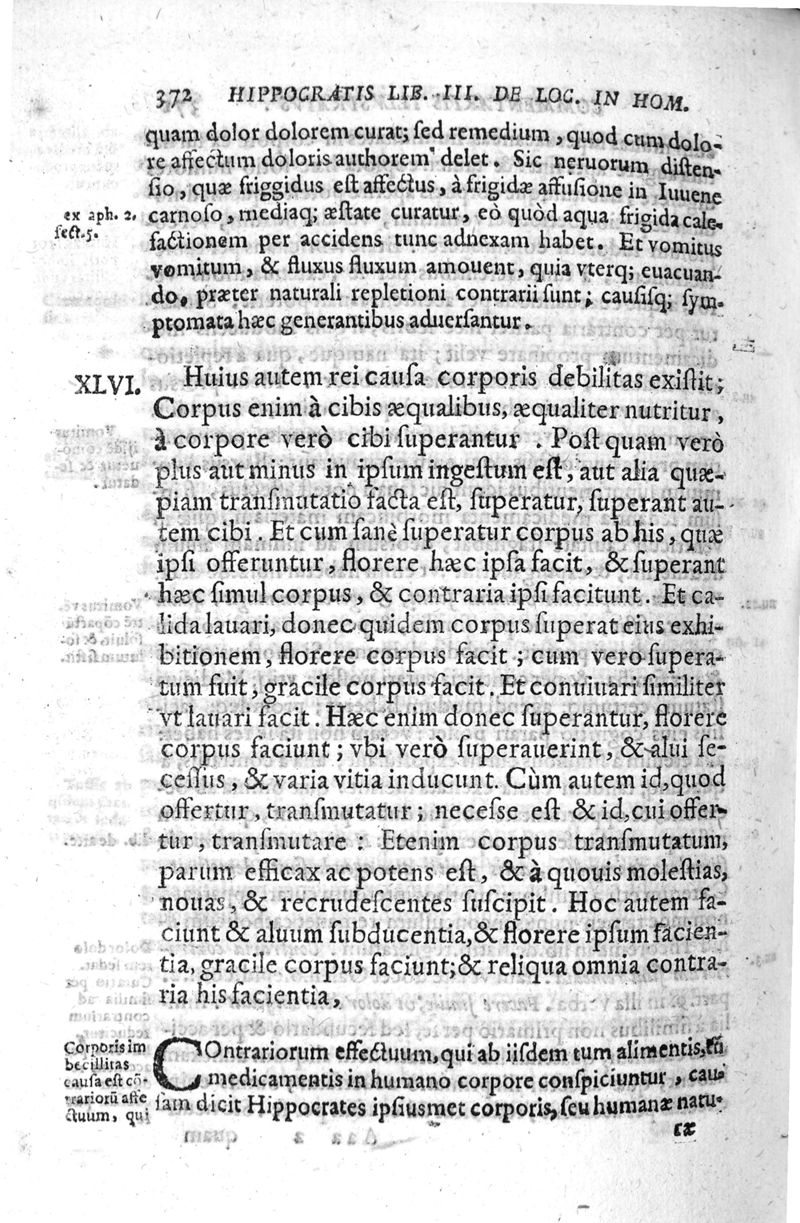 372 HIPPOCRATIS LIB. III. DE LOC. IN HOM.
quam dolor dolorem curat; ſed remedium, quod cum dolo-
re affectum doloris authorem delet. Sic neruorum diſten-
ſio, quæ friggidus eſt affectus, à frigidæ affuſione in Iuuene
ex aph. 2.
ſect. 5.
carnoſo, mediaq; æſtate curatur, eò quòd aqua frigida cale-
factionem per accidens tunc adnexam habet. Et vomitus
vomitum, & fluxus fluxum amouent, quia vterq; euacuan-
do, præter naturali repletioni contrarii ſunt; cauſiſq; ſym-
ptomata hæc generantibus aduerſantur.
XLVI. Huius autem rei cauſa corporis debilitas exiſtit;
Corpus enim à cibis æqualibus, æqualiter nutritur,
à corpore verò cibi ſuperantur. Poſt quam verò
plus aut minus in ipſum ingeſtum eſt, aut alia quæ-
piam tranſmutatio facta eſt, ſuperatur, ſuperant au-
tem cibi. Et cum ſanè ſuperatur corpus ab his, quæ
ipſi offeruntur, florere hæc ipſa facit, & ſuperant
hæc ſimul corpus, & contraria ipſi facitunt. Et ca-
lida lauari, donec quidem corpus ſuperat eius exhi-
bitionem, florere corpus facit; cum vero ſupera-
tum fuit, gracile corpus facit. Et conuiuari ſimiliter
vt lauari facit. Hæc enim donec ſuperantur, florere
corpus faciunt; vbi verò ſuperauerint, & alui ſe-
ceſſus, & varia vitia inducunt. Cùm autem id, quod
offertur, tranſmutatur; neceſſe eſt & id, cui offer-
tur, tranſmutare: Etenim corpus tranſmutatum,
parum efficax ac potens eſt, & à quouis moleſtias,
nouas, & recrudeſcentes ſuſcipit. Hoc autem fa-
ciunt & aluum ſubducentia, & florere ipſum facien-
tia, gracile corpus faciunt; & reliqua omnia contra-
ria his facientia,
Corporis im
becillitas
cauſa eſt cō-
trariorū affe
ctuum, qui
COntrariorum effectuum, qui ab iiſdem tum alimentis, tū
medicamentis in humano corpore conſpiciuntur, cau-
ſam dicit Hippocrates ipſiuſmet corporis, ſeu humanæ natu-
ræ